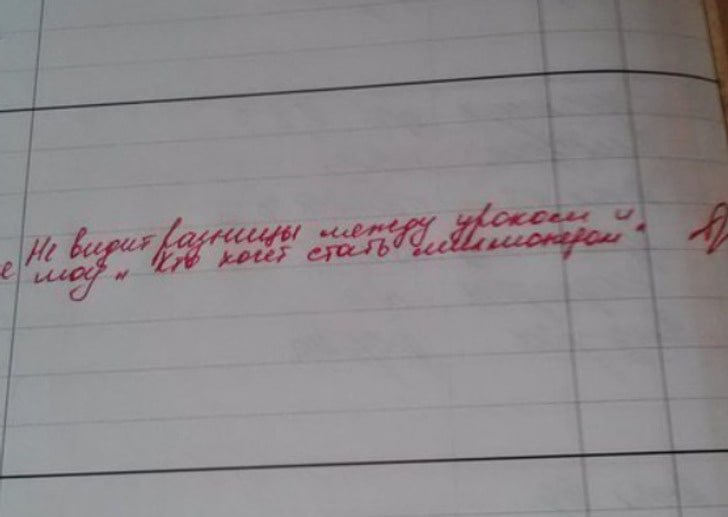 Не видит разницы между уроком и
шоу „Кто хочет стать миллионером"